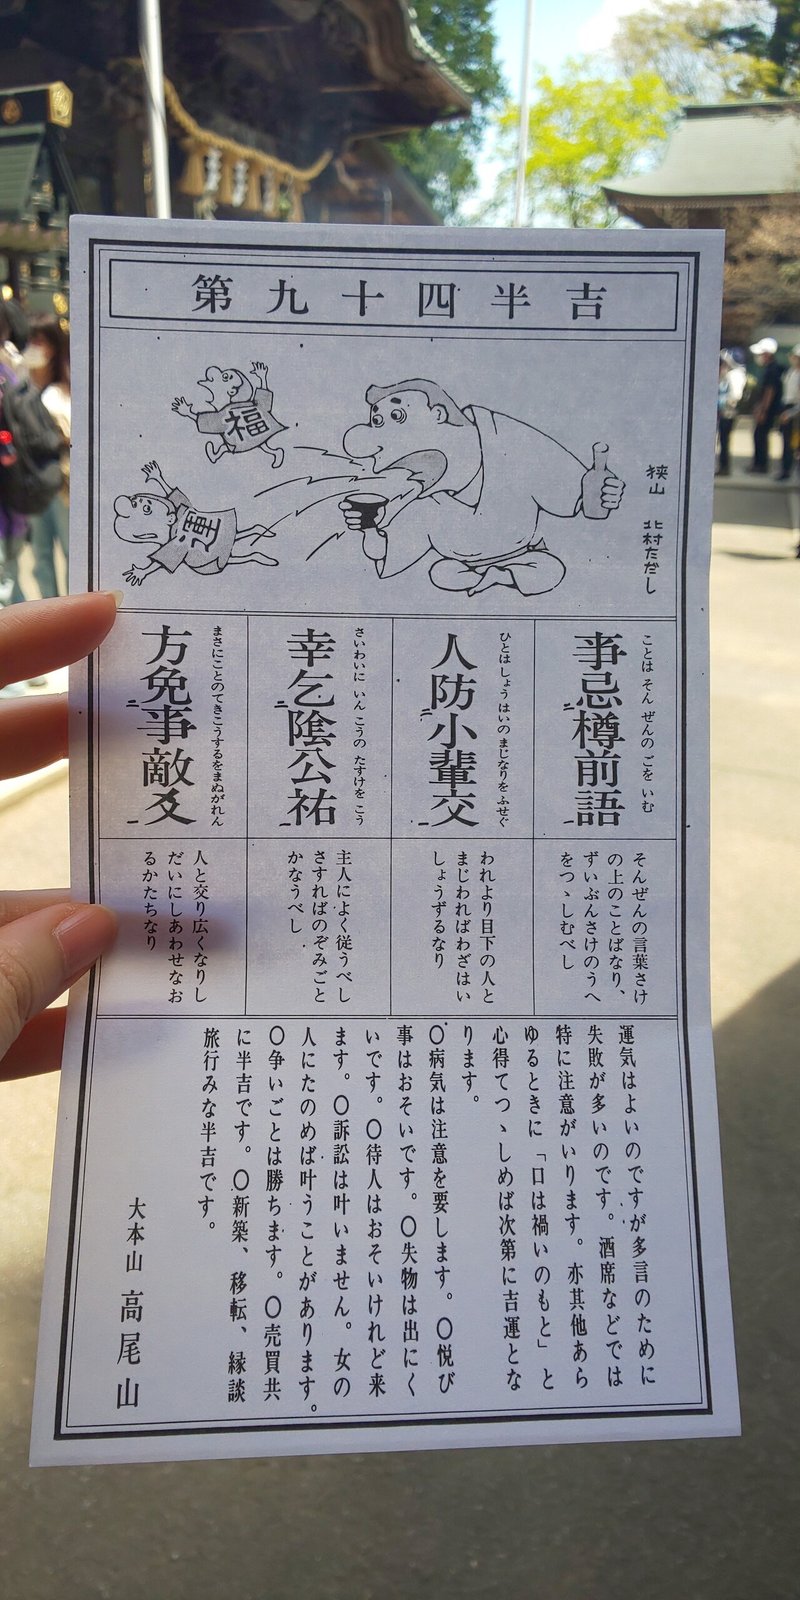 第九十四半吉
福
運
狭山 北村ただし
ことは そん ぜんの ごを いむ
事忌樽前語
そんぜんの言葉さけ
の上のことばなり、
ずいぶんさけのうへ
をつゝしむべし
ひとは しょう はいの まじなりを ふせぐ
人防小輩交
われより目下の人と
まじわればわざはい
しょうずるなり
さいわいに いん こうの たすけを こう
幸乞陰公祐
主人によく従うべし
さすればのぞみごと
かなうべし
まさにことのてきこうするをまぬがれん
方免事敵爻
人と交り広くなりし
だいにしあわせなお
るかたちなり
運気はよいのですが多言のために
失敗が多いのです。酒席などでは
特に注意がいります。亦其他あら
ゆるときに「口は禍いのもと」と
心得てつゝしめば次第に吉運とな
ります。
〇病気は注意を要します。〇悦び
事はおそいです。〇失物は出にく
いです。〇待人はおそいけれど来
ます。〇訴訟は叶いません。女の
人にたのめば叶うことがあります。
〇争いごとは勝ちます。〇売買共
に半吉です。〇新築、移転、縁談
旅行みな半吉です。
大本山 高尾山